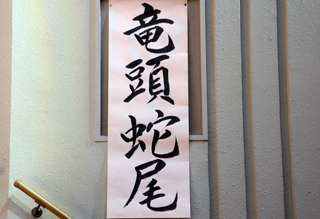 竜頭蛇尾